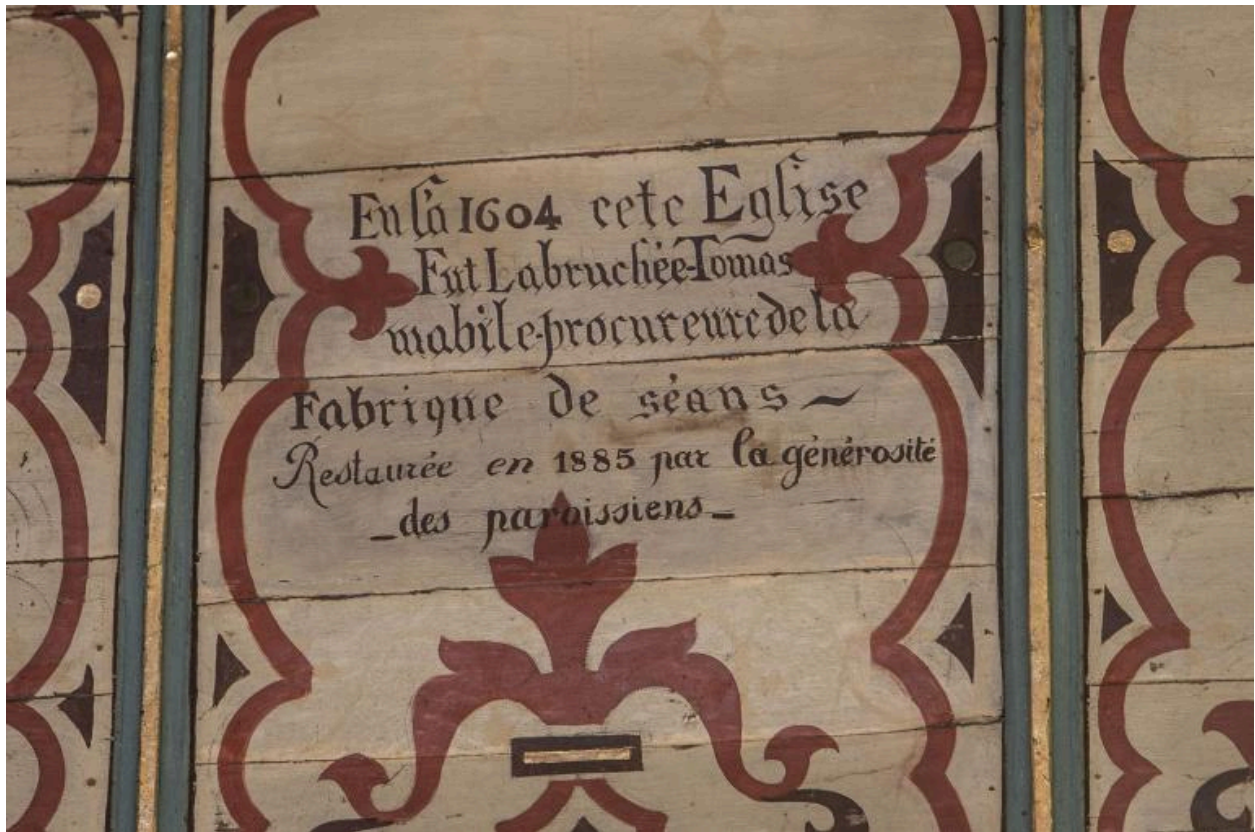 En lã 1604 cete Eglise
Fut Labruchée-Tomas
mabile-procureure de la
Fabrique de séans ~
Restaurée en 1885 par la générosité
_ des paroissiens _